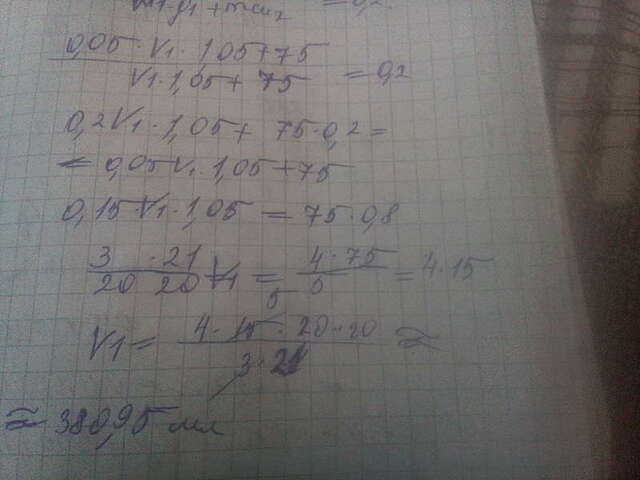 = 0,2
0,05·V1·1,05+75
V1·1,05+75 = 0,2
0,2V1·1,05+ 75·0,2=
= 0,05V1·1,05+75
0,15·V1·1,05 = 75·0,8
3·21 4·75
20 20 V1 = 5 5 = 4·15
4·15·20·20
V1 = ≈
3·21
≈ 380,95 мл